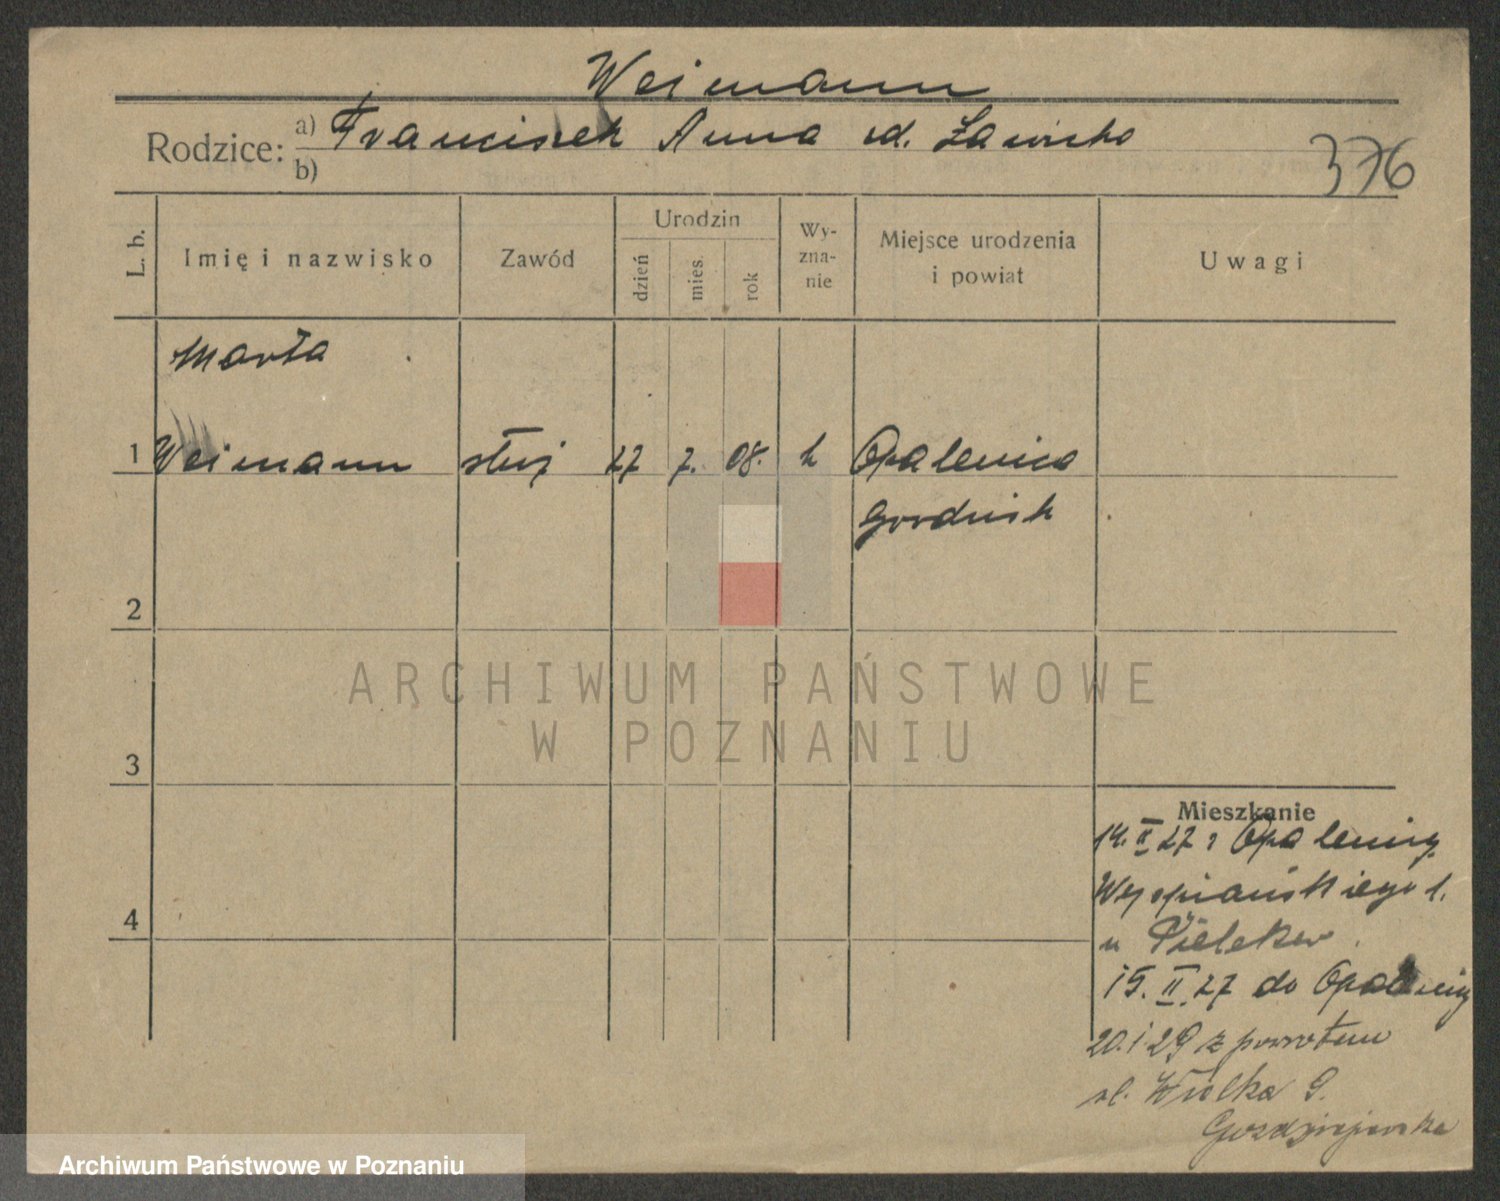 Weimann
Rodzice: a) Franciszek Anna zd. Ławicka
b)
376
L. b.
Imię i nazwisko
Zawód
Urodzin
dzień
mies.
rok
Wy-
zna-
nie
Miejsce urodzenia
i powiat
Uwagi
Marta
1 Weimann służ 27 7. 08. k Opalenica
Grodzisk
2
ARCHIWUM PAŃSTWOWE
W POZNANIU
3
Mieszkanie
14. II 27 z Opalenicy
Wyspiańskiego 1.
4
u
15. II. 27 do Opalenicy
20.1 29 z powrotem
ul. Wielka 9.
Archiwum Państwowe w Poznaniu